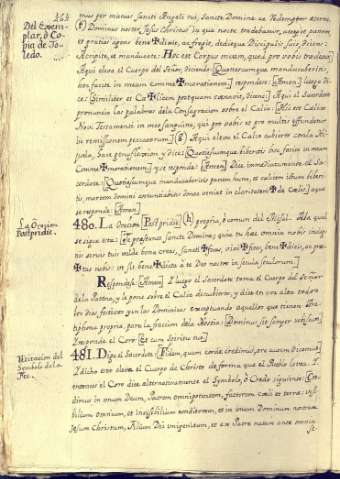 464
Del Exem-
plar, ò Co-
pia de To-
ledo.
mus per mutuas Sancti Angeli tui, Sancte Domine ac Redemptor æterne.
(f) Dominus noster Jesu Christus in qua nocte tradebatur, accepit panem,
et gratias agens bene✠dixit, ac fregit, deditque Discipulis suis, dicens:
Accipite, et manducate: Hoc est Corpus meum, quod pro vobis tradetur.
Aqui eleva el Cuerpo del Señor, diciendo: Quotiescumque manducaveritis,
hoc facite in meam Com✠memorationem] responden: [Amen] luego di-
ce: Similiter et Ca✠licem postquam cœnavit, dicens:] Aqui el Sacerdote
pronuncia las palabras de la Consagracion sobre el Caliz: [Hic est Calix
Novi Testamenti in meo sanguine, qui pro vobis et pro multis effundetur
in remissionem peccatorum] (g) Aqui eleva el Caliz cubierto con la Hi-
juela, hace genuflexion, y dice: [Quotiescumque biberitis hoc facite in meam
Comme✠morationem] y se responde: [Amen] Dice inmediatamente el Sa-
cerdote: [Quotiescumque manducaveritis panem hunc, et calicem istum biberi-
tis, mortem Domini annunciabitis donec veniat in claritatem ✠ de Cœlis] a que
se responde: [Amen]
La Oracion
Postpridie.
480. La Oracion [Postpridie] (h) propria, ò comun del Misal. A la qual
se sigue esta: [Te præstante sancte Domine, quia tu hæc omnia nobis indig-
nis servis tuis valde bona creas, sancti✠ficas, vivi✠ficas, bene✠dicis, ac præ-
✠stas nobis: ut sis bene✠dicta à te Deo nostro in sæcula sæculorum]
Responden: [Amen] Y luego el Sacerdote toma el Cuerpo del Señor
de la Patena, y la pone sobre el Caliz descubierto, y dice en voz alta todos
los dias, festivos, y en las Dominicas exceptuando aquellos que tienen An-
tiphona propria, para la fraccion de la Hostia: [Dominus sit semper vobiscum]
Responde el Coro [Et cum Spiritu tuo]
Recitacion del
Symbolo de la
Fee.
481. Dice el Sacerdote [Fidem, quam corde credimus, ore autem dicamus]
Y dicho esto eleva el Cuerpo de Christo de forma que el Pueblo lo vea. Y
entonces el Coro dice alternativamente el Symbolo, ò Credo siguiente: [Cre-
dimus in unum Deum, Patrem omnipotentem, factorem cœli et terræ: visi-
bilium omnium, et invisibilium conditorem, et in unum Dominum nostrum
Jesum Christum, Filium Dei unigenitum, et ex Patre natum ante omnia